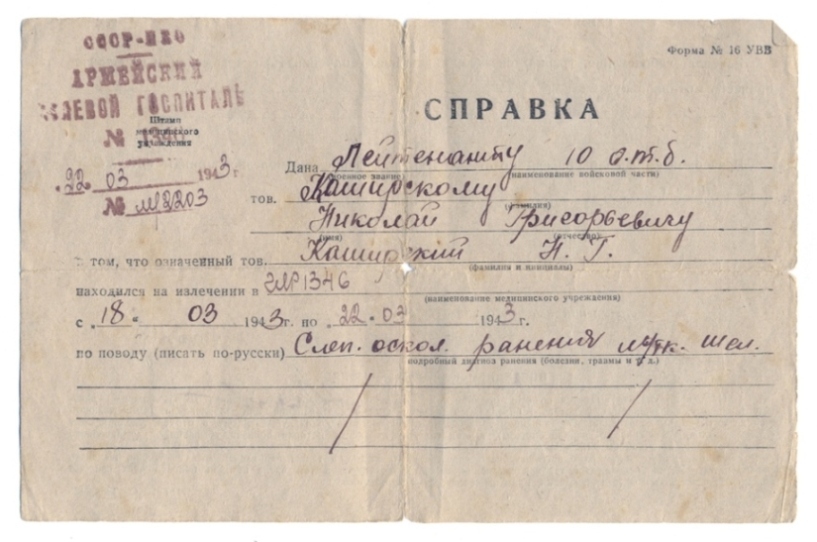 СССР-НКО
АРМЕЙСКИЙ
ПОЛЕВОЙ ГОСПИТАЛЬ
Штамп
медицинского
учреждения
№
22 03 1943г.
№
Форма № 16 УВВ
СПРАВКА
Дана Лейтенанту 10 о.т.б.
(военное звание) (наименование войсковой части)
тов. Каширскому
(фамилия)
Николай Григорьевичу
(имя) (отчество)
в том, что означенный тов. Каширский Н. Г.
(фамилия и инициалы)
находился на излечении в 1346
(наименование медицинского учреждения)
с „18“ 03 1943г. по 22 03 1943г.
по поводу (писать по-русски) Слеп. оскол. ранения
подробный диагноз ранения (болезни, травмы и т. д.)